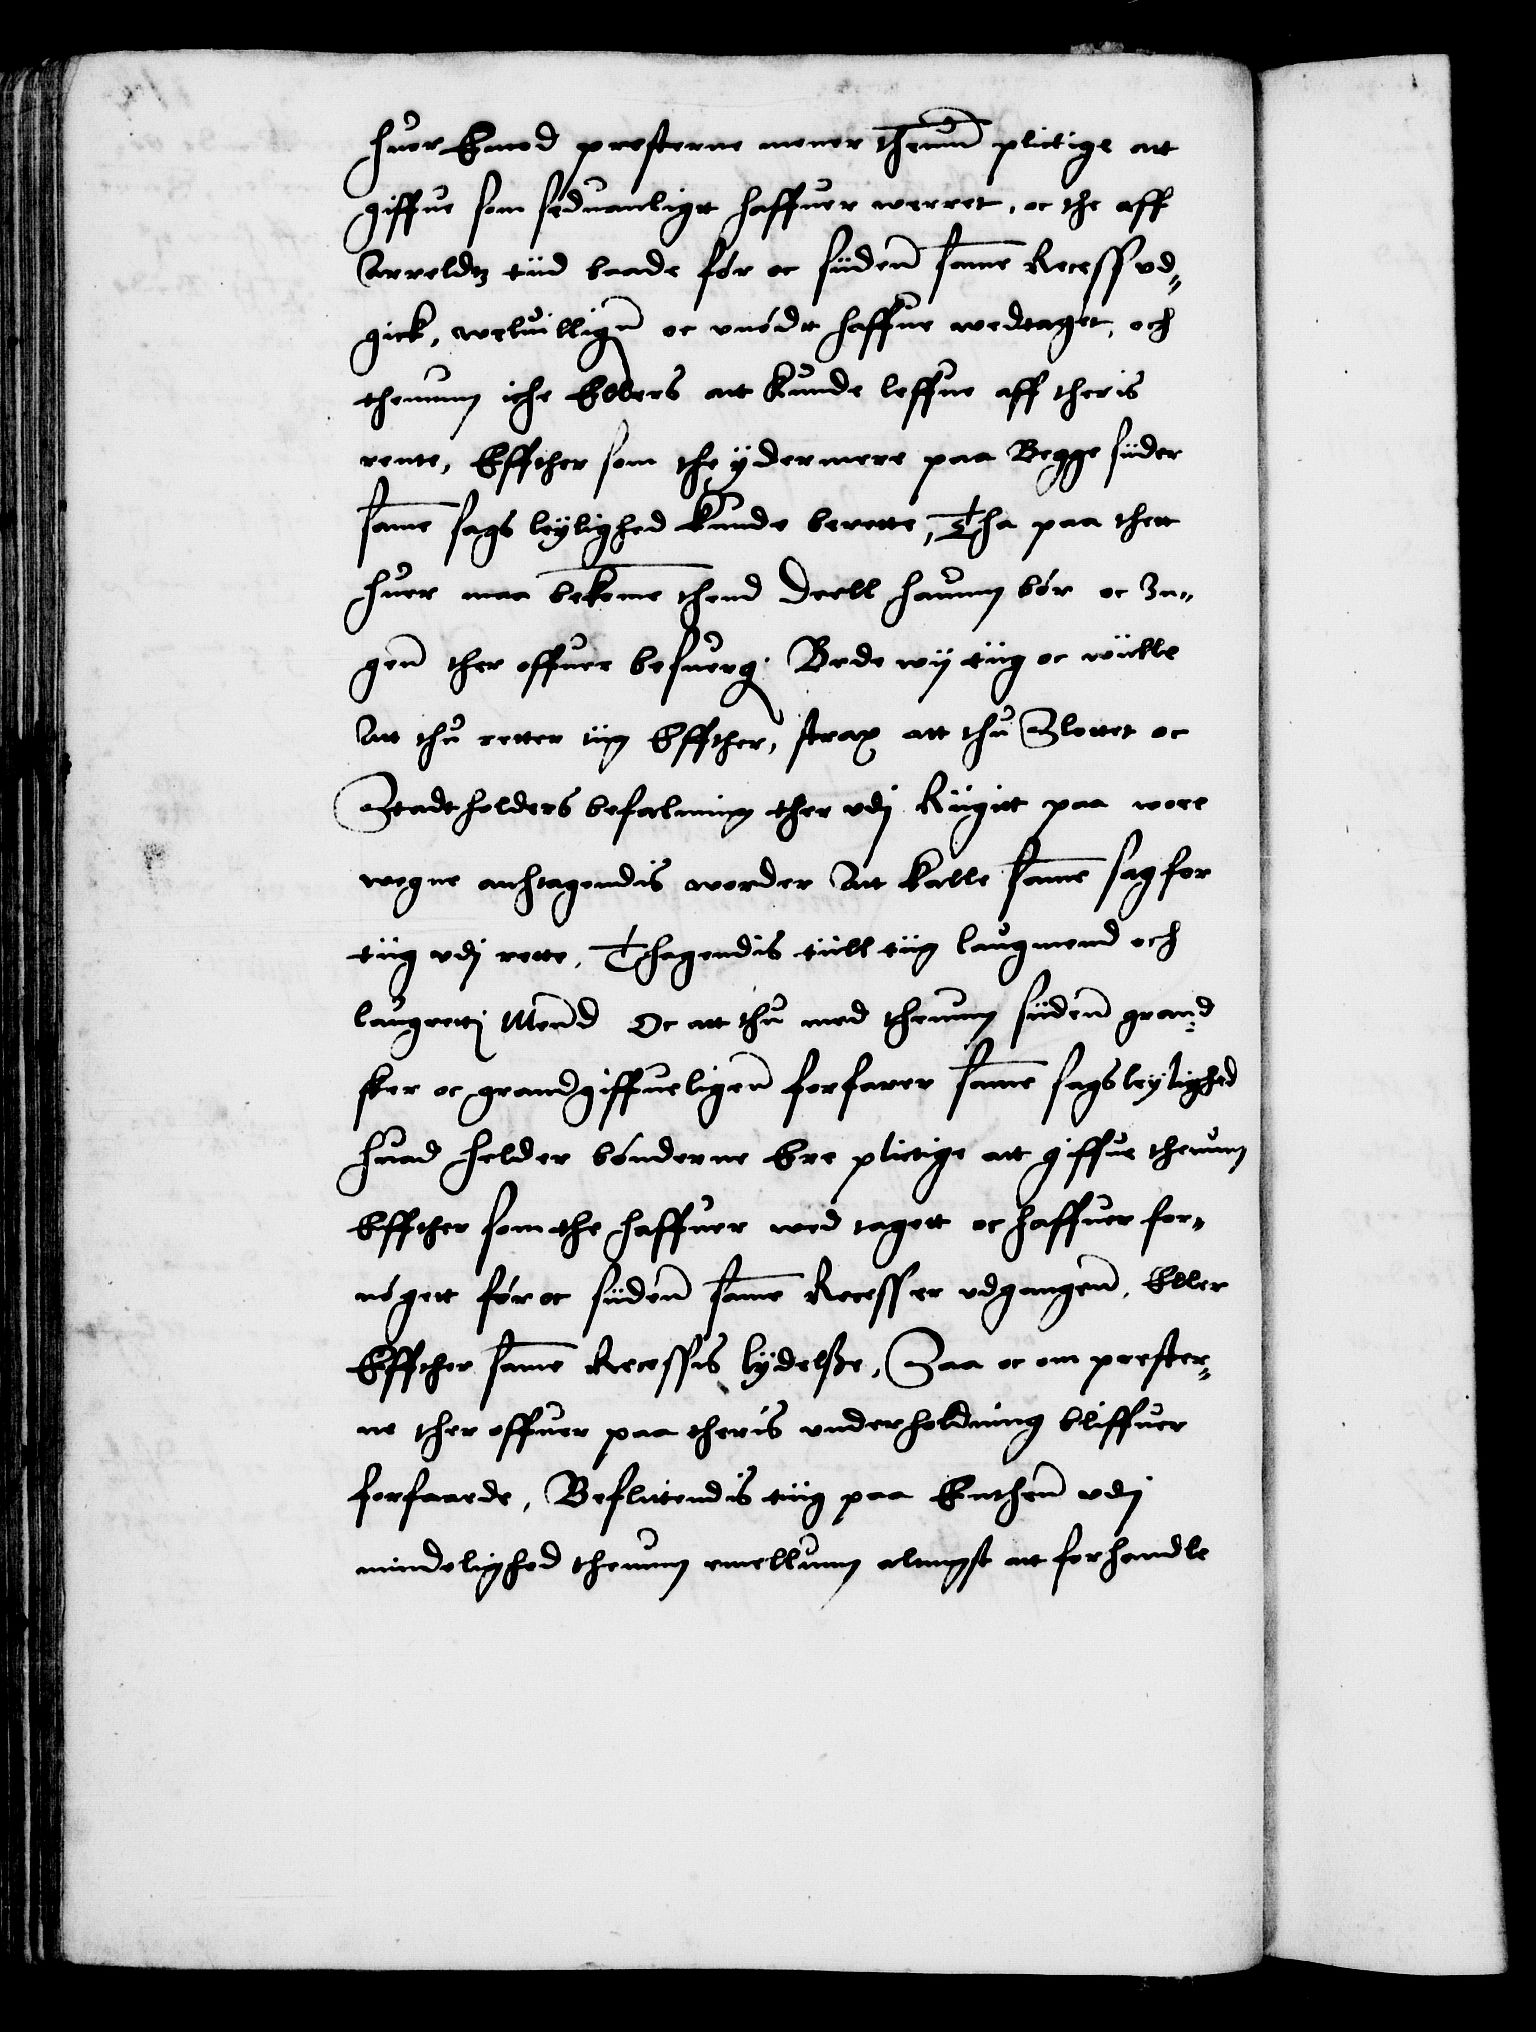 huer Emod presterne mener thenum plictige att
giffue som seduanligt haffuer werret, oc the aff
Arreldtz tiid baade för oc siiden same Recess vd„
gick, weluilligen oc vnödt haffue wedtaget, och
thenum iche Ellers att kunde leffue aff theris
rente, Effther som the ÿdermere paa Begge siider
same sags leÿlighed kunde berette, Tha paa thett
huer maa bekome thend Deell hanum bör oc In„
gen ther offuer besuerg. Bede wÿ tiig oc wiille
Att thu retter tiig Effther, strax att thu Slottet oc
Stadtholders befalning ther vdj Riigitt paa wore
wegne anthagendis worder Att kalle same sag for
tiig vdj rette, Thagendis tiill tiig laugmend och
laugrettj Mend Oc att thu med thenum siiden grand„
sker oc grandgiffueligen forfarer same sags leÿlighed
huad helder bönderne Ere plictige att giffue thenum
Effther som the haffuer wed tagett oc haffuer for„
nögett för oc siiden same Recess er vdgangen, Eller
Effther same Recessis lÿdelsse, Saa oc om prester„
ne ther offuer paa theris vnderholdning bliffuer
forfaarde, Beflitendis tiig paa Enthen vdj
mindelighed thenum emellum altingst att forhandle